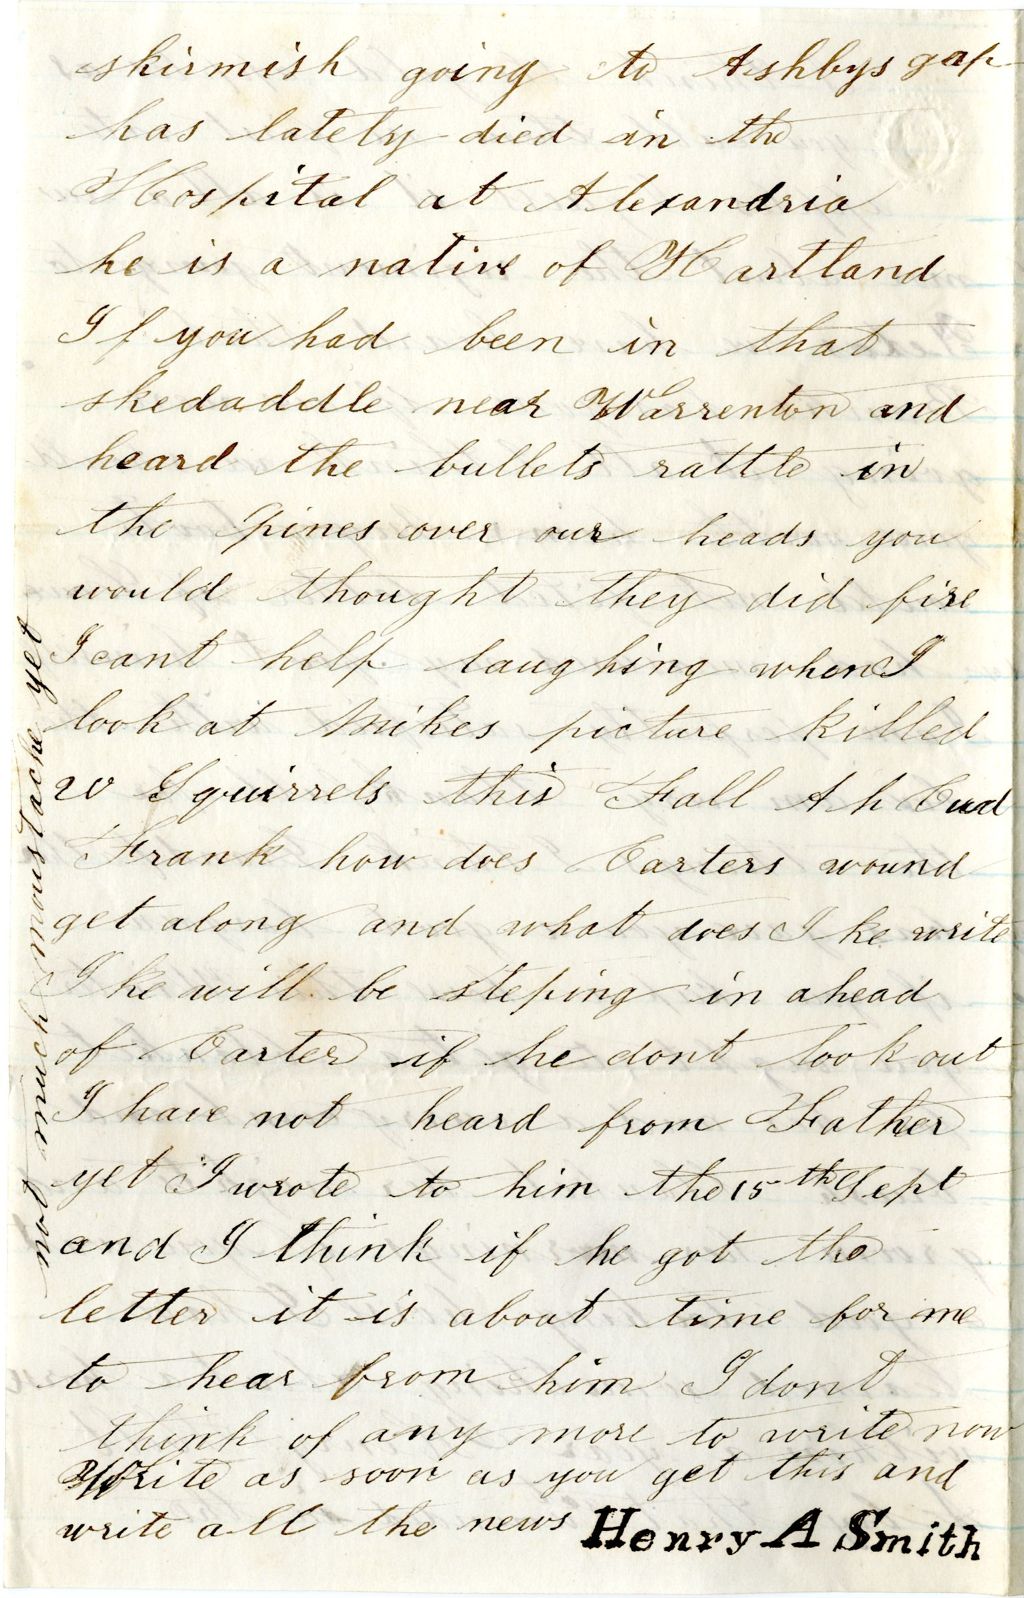 skirmish going to Ashbys gap
has lately died in the
Hospital at Alexandria
he is a native of Hartland
If you had been in that
skedaddle near Warrenton and
heard the bullets rattle in
the pines over our heads you
would thought they did fire
I cant help laughing when I
look at Mikes picture killed
20 Squirrels this Fall Ah Cud
Frank how does Carters wound
get along and what does Ike write
Ike will be steping in ahead
of Carter if he dont look out
I have not heard from Father
yet I wrote to him the 15th Sept
and I think if he got the
letter it is about time for me
to hear from him I dont
think of any more to write now
Write as soon as you get this and
write all the news Henry A Smith
not much moustache yet